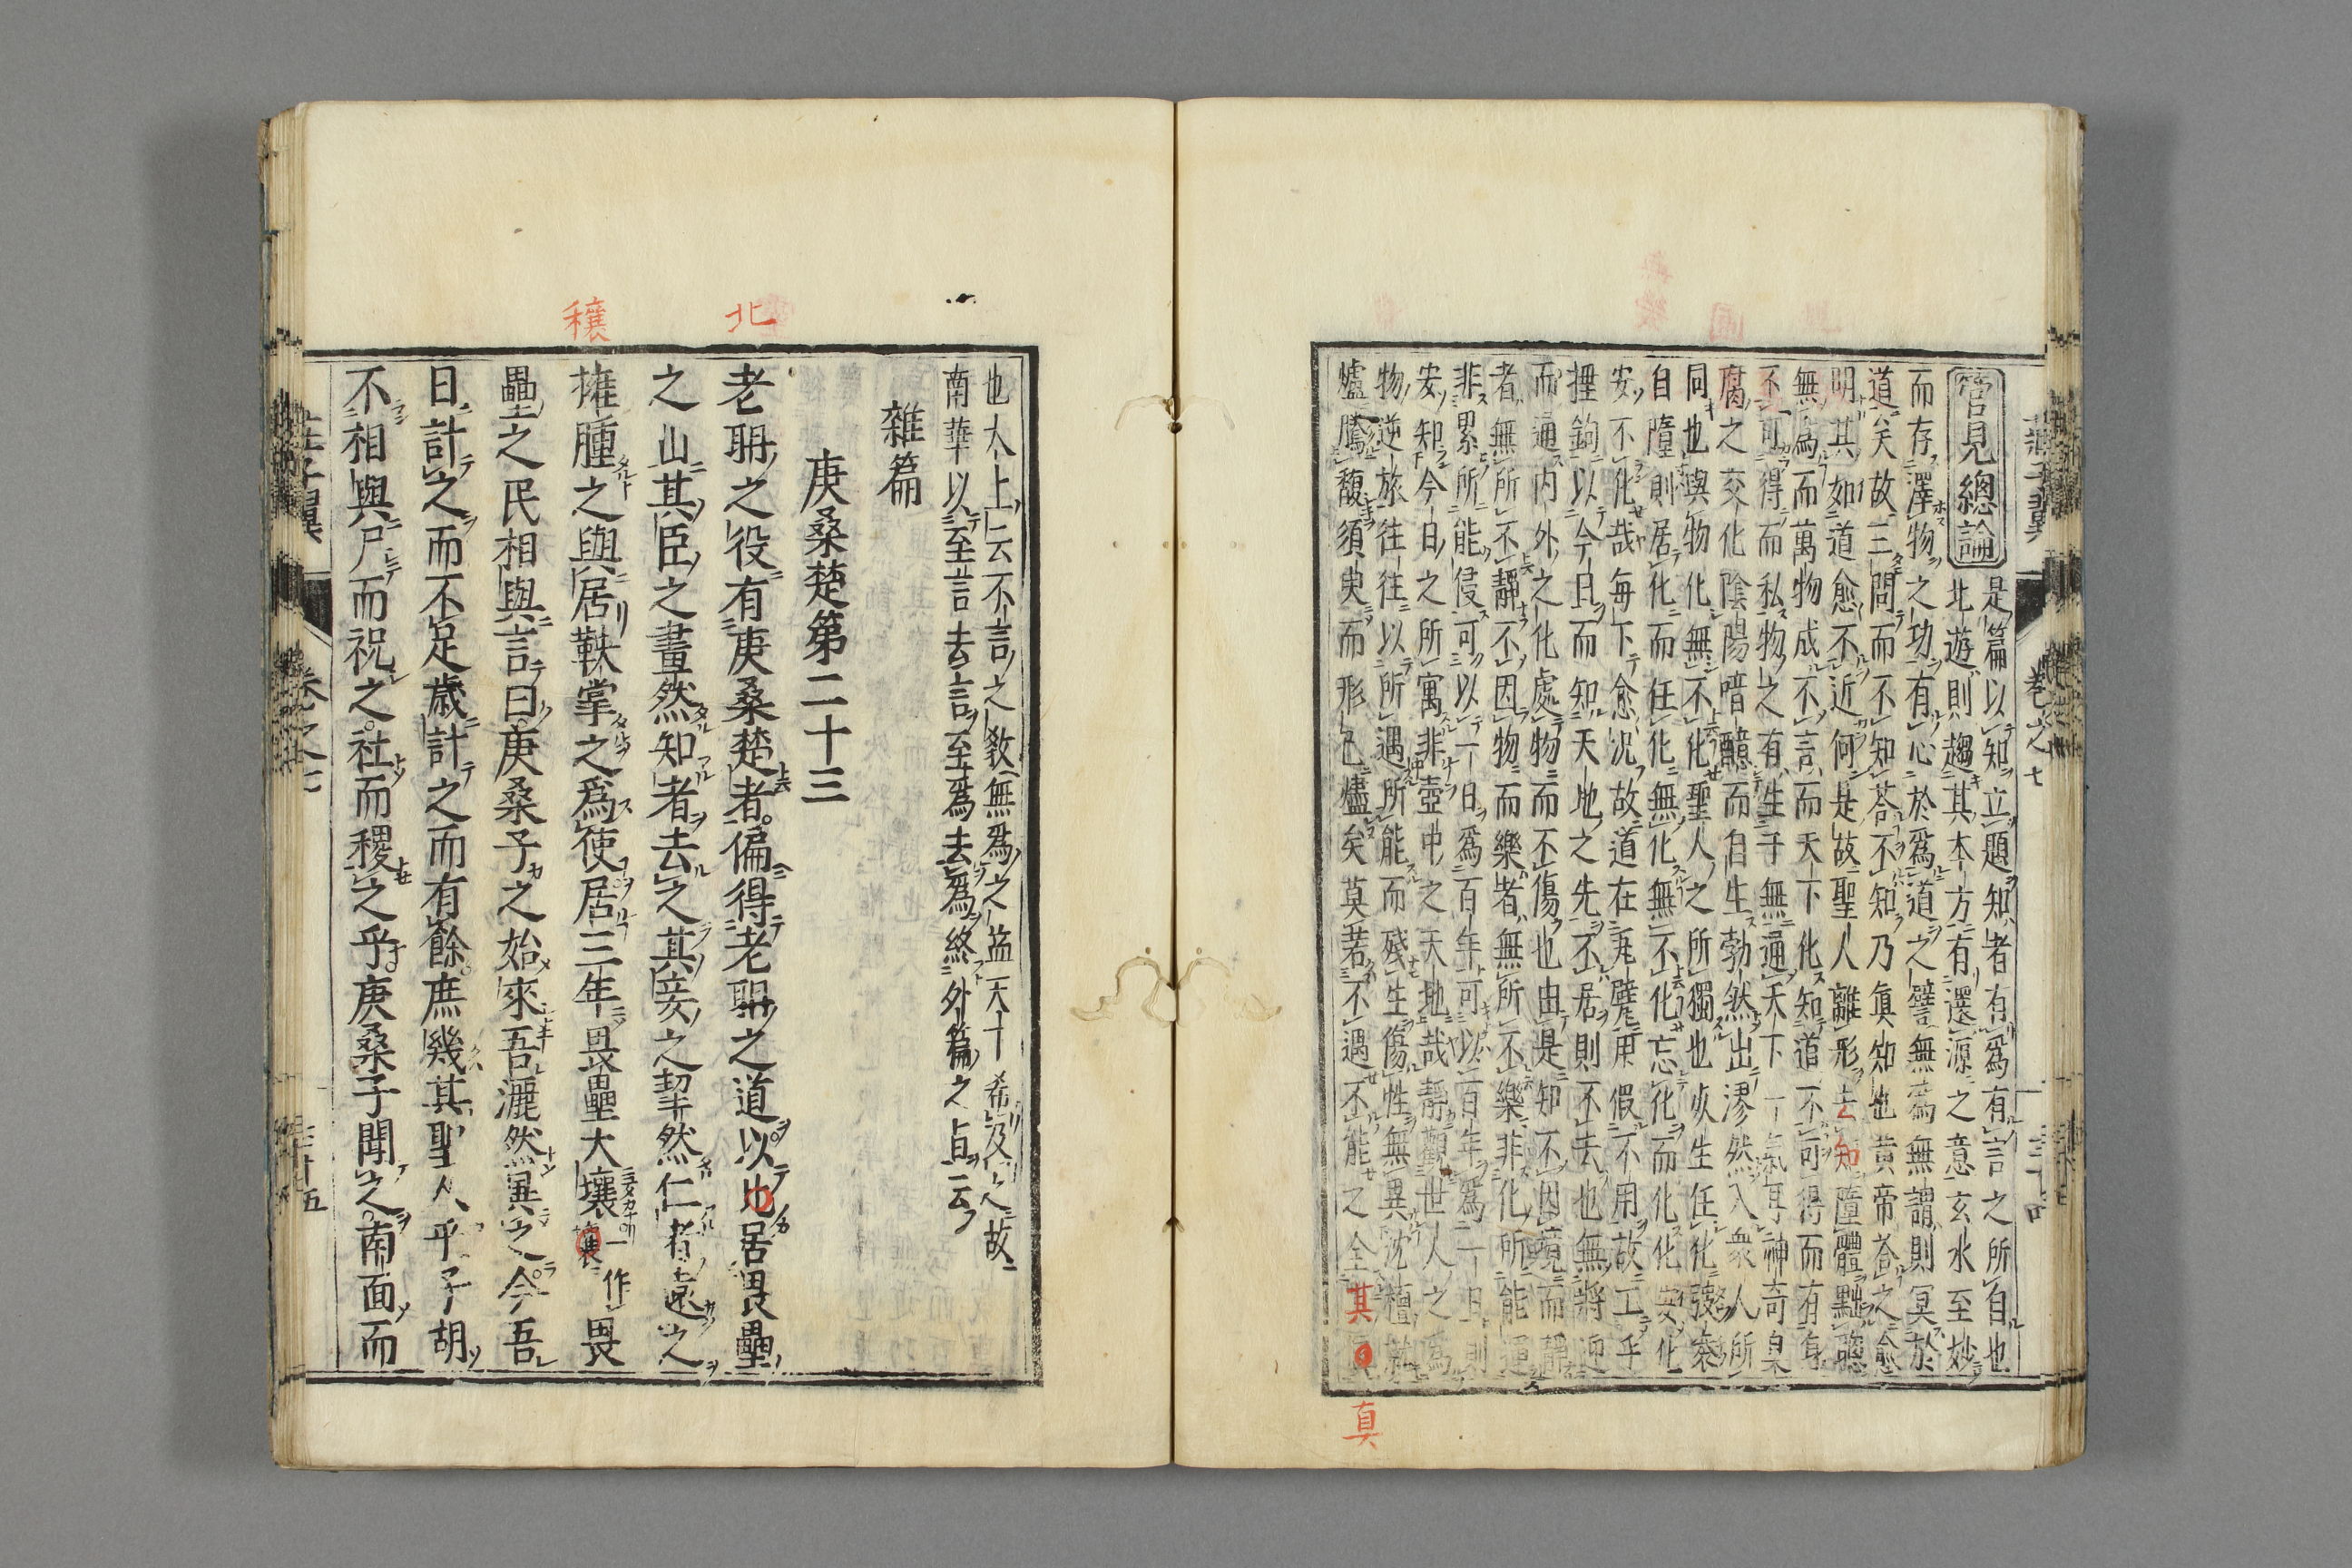 管見總論
是篇以知立題知者有爲有言之所自也
北遊則趨其本方有還源之意玄水至妙
而存澤物之功有心於爲道之譬無爲無謂則冥於
道矣故三問而不知荅不知乃眞知也黃帝荅之愈
明其如道愈不近何是故聖人離形去知墮體黜聰
無爲而萬物成不言而天下化知道不可得而有身
不可得而私物之有生于無通天下一氣耳神奇臭
腐之交化陰陽喑醷而自生勃然出漻然入衆人所
同也與物化無不化聖人之所獨也生任化弢
自隳則居化而任化無化無不化忘化而化化安化
安不化哉每下愈況故道在屎擘用假不用故工乎
捶鉤以今日而知天地之先不居則不去也無將迎
而通內外之化處物而不傷也由是知不因境而靜
者無所不靜不因物而樂者無所不樂非化所能運
非累所能侵可以一日爲百年可以百年爲一日則
安知今日之所寓非壺中之天地哉靜觀世人之爲
物逆旅往往以所遇所能而殘生傷性無異沈檀
爐騰馥須臾而形已燼矣莫若不遇不能之全其
眞
卷之七
也太上云不言之敎無爲之益天下希及之故
南華以至言去言至爲去爲終外篇之旨云
雜篇
庚桑楚第二十三
北
老聃之役有庚桑楚者偏得老聃之道以北居畏壘
之山其臣之畫然知者去之其妾之挈然仁者遠之
穰
擁腫之與居鞅掌之爲使居三年畏壘大壤一作穰畏
壘之民相與言曰庚桑子之始來吾灑然異之今吾
日計之而不足歲計之而有餘庶幾其聖人乎子胡
不相與尸而祝之社而稷之乎庚桑子聞之南面而
卷之七